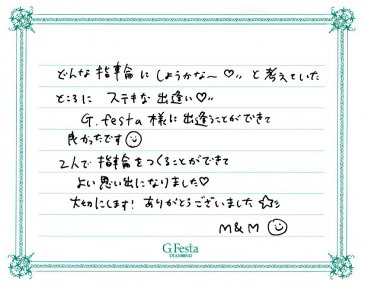 どんな指輪にしようかな～♡〃と考えていた
ところにステキな出逢い♡〃
G.festa様に出逢うことができて
良かったです☺
2人で指輪をつくることができて
よい思い出になりました♡
大切にします！ありがとうございました☆彡
M&M ☺
G.Festa
DIAMOND